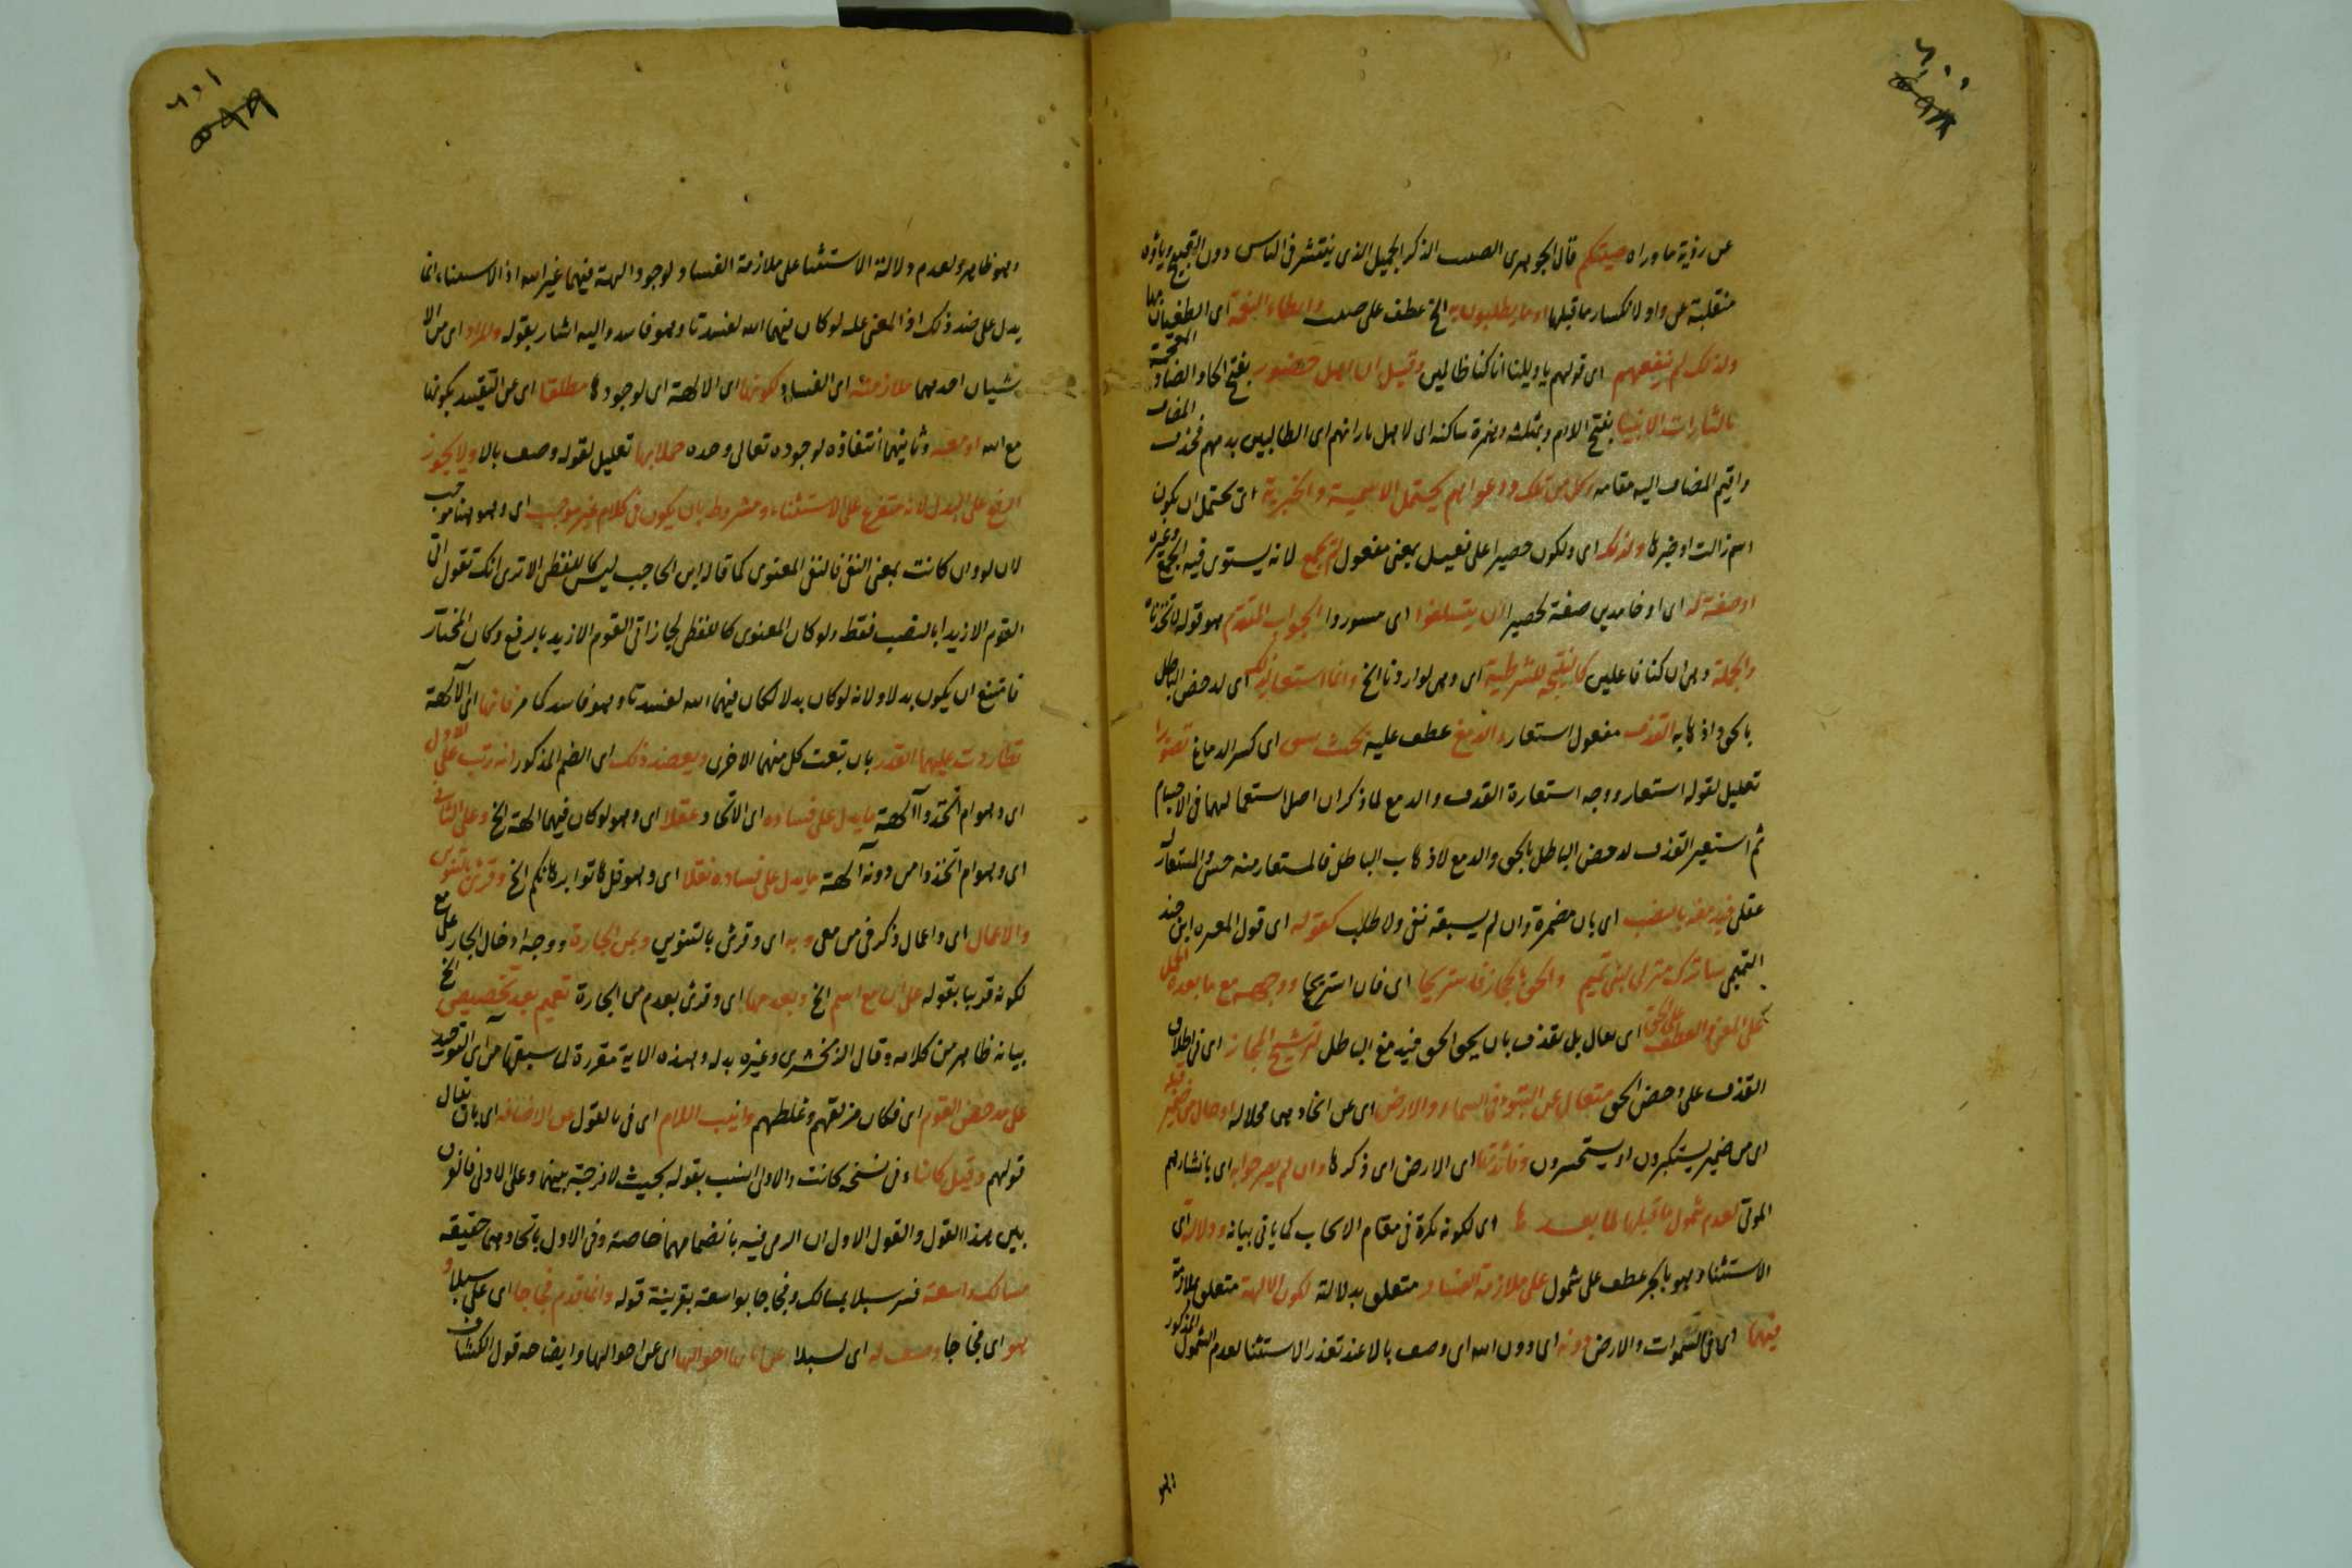 ٦٠٠
٥٩٨
عن رؤية ما وراه صيتكم قال الجوهرى الصيت الذكر الجميل الذى ينتشر فى الناس دون القبيح وياؤه
منقلبة عن واو لانكسار ما قبلها او ما يطلبون به الخ عطف على صيت وابطاء النعمة اى الطغيان بها
ولذلك لم ينفعهم اى قولهم يا ويلنا انا كنا ظالمين وقيل ان اهل حضور بفتح الحا والضاد المعجمة
لثارات الانبيا بفتح اللام وبمثلثة وهمزة ساكنه اى لاجل ثاراتهم اى الطالبين بدمهم فحذف المضاف
واقيم المضاف اليه مقامه وكل من تلك ودعواهم يحتمل الاسمية والخبرية اى يحتمل ان يكون
اسم زالت او خبرها ولذلك اى ولكون حصيرا على فعيل بمعنى مفعول لم يجمع لانه يستوى فيه الجمع وغيره
او صفة له اى او خامدين صفة لحصيرا ان يتسلفوا اى الجواب المتقدم هو قوله لاتخذناه
والجملة وهى ان كنا فاعلين كالنتيجة للشرطية اى وهى لو اردنا الخ وانما استعار لذلك اى لدحض الباطل
بالحق واذهابه القذف مفعول استعار والدمغ عطف عليه بحيث اى كسر الدماغ تصويرا
تعليل لقوله استعار ووجه استعارة القذف والدمغ لما ذكر ان اصل استعمالهما فى الاجسام
ثم استعير القذف لدحض الباطل بالحق والدمغ لاذهاب الباطل فالمستعار منه حسى والمستعار له
عقلى فيدمغه بالنصب اى بان مضمرة وان لم يسبقه نفى ولا طلب كقوله اى قول المغيرة ابن حبنا
التميمى ساترك منزلى لبنى تميم والحق بالحجاز فاستريحا اى فان استريحا ووجهه مع ما بعده الحمل
على المعنى والعطف على الحق اى بل نقذف بان يحق الحق فيدمغ الباطل لترشيح المجاز اى فى اطلاق
القذف على دحض الحق متعال عن التبؤ فى السماء والارض اى عن اتخاذهما محلا له او حال من ضمير قبله
اى من ضمير يستكبرون او يستحسرون وفائدتها اى الارض اى ذكرها وان لم يصرحوا به اى بانشارهم
الموتى لعدم شمول ما قبلها لما بعدها اى لكونه نكرة فى مقام الايجاب كما ياتى بيانه ودلالة اى
الاستثنا وهو بالجر عطف على شمول على ملازمة الفساد متعلق بدلالة لكون الالهة متعلق بملازمة
فيهما اى فى السموات والارض دونه اى دون الله اى وصف بالا عند تعذر الاستثنا لعدم الشمول المذكور
٦٠١
٥٩٩
وهو ظاهر ولعدم دلالة الاستثنا على ملازمة الفساد لوجود الهة فيهما غير الله اذ الاستثناء انما
يدل على ضد ذلك اذ المعنى عليه لو كان فيهما الله لفسدتا وهو فاسد واليه اشار بقوله والمراد اى من الا
شيان احدهما ملازمته اى الفساد لكونها اى الالهة اى لوجودها مطلقا اى عن التقييد بكونها
مع الله او معه وثانيهما انتفاؤه لوجوده تعالى وحده حملا بها تعليل لقوله وصف بالا ولا يجوز
الرفع على البدل لانه متفرع على الاستثناء ومشروط بان يكون فى كلام غير موجب اى وهو هنا موجب
لان لو وان كانت بمعنى النفى فالنفى المعنوى كما قاله ابن الحاجب ليس كاللفظى الا ترى انك تقول ابى
القوم الا زيدا بالنصب فقط ولو كان المعنوى كاللفظى لجاز ابى القوم الا زيد بالرفع وكان المختار
فامتنع ان يكون بدلا ولانه لو كان بدلا لكان فيهما الله لفسدتا وهو فاسد كما مر فانها اى الالهة
تطاردت عليهما القدر بان تبعت كل منهما الاخرى ويعضد ذلك اى الضم المذكور انه رتب على الاول
اى وهو ام اتخذوا آلهة ما يدل على فساده اى الاتخاذ عقلا اى وهو لو كان فيهما الهة الخ وعلى الثانى
اى وهو ام اتخذوا من دونه آلهة ما يدل على فساده نقلا اى وهو قل هاتوا برهانكم الخ وقرئ بالتنوين
والاعمال اى واعمال ذكر فى من معى وبه اى وقرئ بالتنوين وبمن الجارة ووجه ادخال الجار على مع
لكونه قريبا بقوله على ان مع اسم الخ وبعدمها اى وقرئ بعدم من الجارة تعميم بعد تخصيص الخ
بيانه ظاهر من كلامه وقال الزمخشرى وغيره بدله وهذه الاية مقررة لما سبقها من آى التوحيد
على مدحض القوم اى فكان مزلقهم وغلطهم وانيب اللام اى فى بالقول عن الاضافه اى بان يقال
قولهم وقيل كانتاء فى نسخه كانت والاولى انسب بقوله بحيث لا فرجة بينهما وعلى الاولى فالفرق
بين هذا القول والقول الاول ان الرمى فيه بانضمامهما خاصة وفى الاول باتحادهما حقيقه
مسالك واسعة فسر سبلا بمسالك وفجاجا بواسعة بقرينة قوله وانما قدم فجاجا اى على سبلا و
هو اى فجاجا وصف له اى لسبلا احوالها اى عن احوالها وايضاحه قول الكشاف